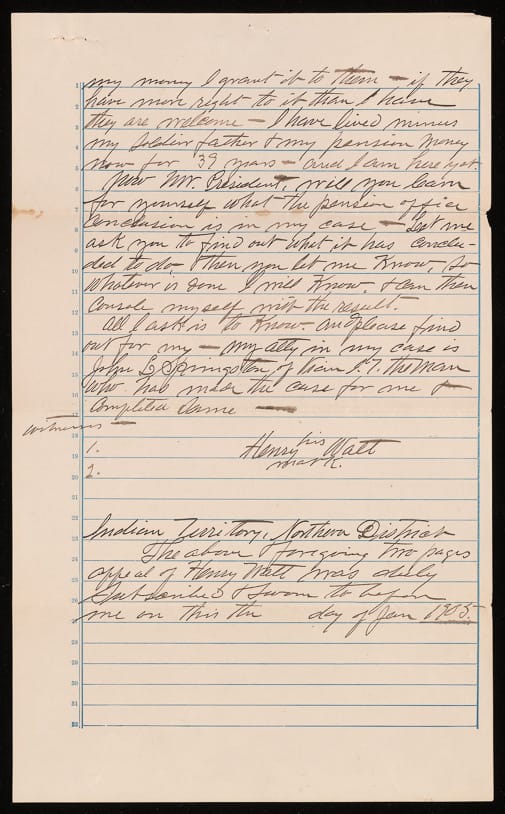 my money I grant it to them - if they
have more right to it than I have
they are welcome - I have lived minus
my Soldier father & my pension money
now for 39 years - and I am here yet.
Now Mr. President, will you learn
for yourself what the pension office
conclusion is in my case - Let me
ask you to find out what it has conclu-
ded to do, then you let me Know, So
whatever is done I will Know, & can then
Console myself with the result.
All I ask is to Know - and please find
out for my - my atty in my case is
John L Springston of Vian I.T. the man
who has made the case for me &
Completed Same
witnesses
1. Henry his Watt
mark.
2.
Indian Territory, Northern District
The above & foregoing two pages
appeal of Henry Watt was duly
Subscribed & Sworn to before
me on this the day of Jan 1905.